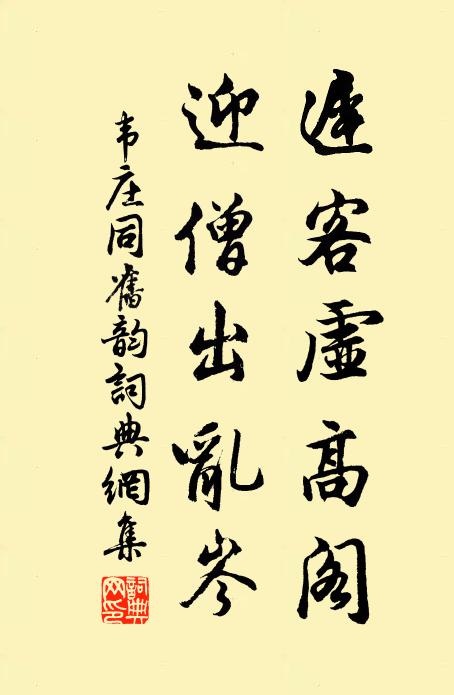 遲客虛高閣
迎僧出亂岑
韦庄同舊韵詞典網集
詞典网印